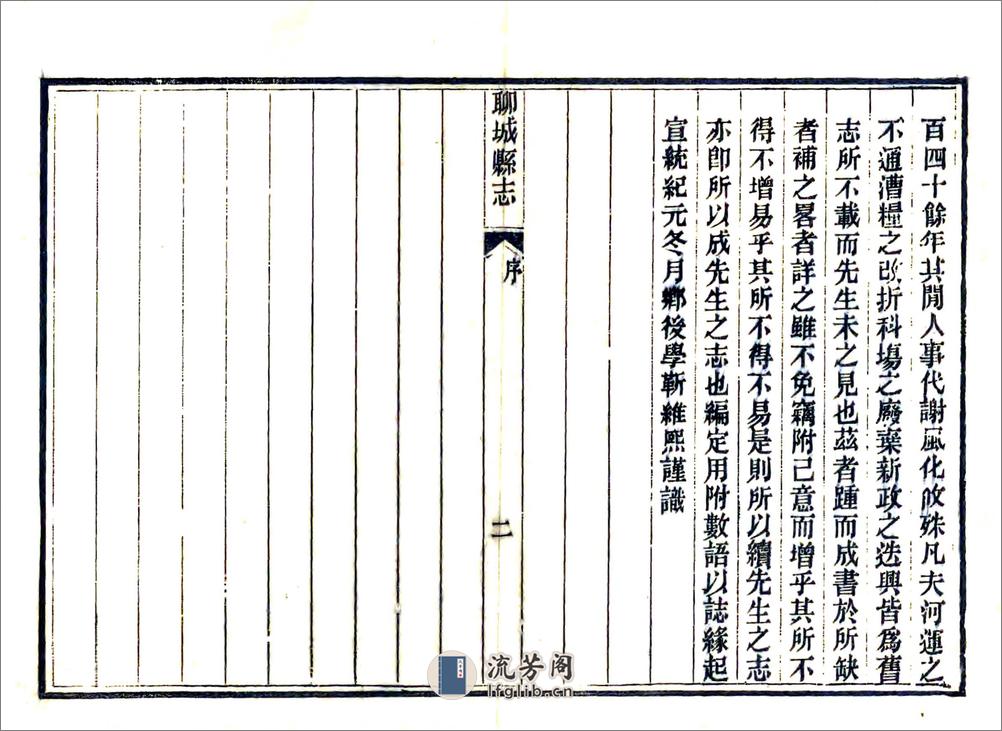 百四十餘年其閒人事代謝風化攸殊凡夫河運之
不通漕糧之改折科塲之廢棄新政之迭興皆爲舊
志所不載而先生未之見也茲者踵而成書於所缺
者補之畧者詳之雖不免竊附己意而增乎其所不
得不增易乎其所不得不易是則所以續先生之志
亦卽所以成先生之志也編定用附數語以誌緣起
宣統紀元冬月鄉後學靳維熙謹識
聊城縣志
序
二
流芳阁
lfglib.cn